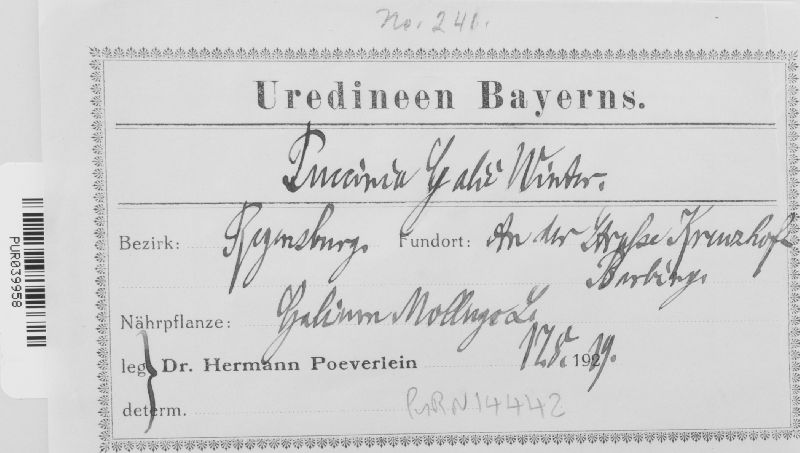 No. 241.
Uredineen Bayerns.
Puccinia Galii Winter.
Bezirk: Regensburg. Fundort: An der Straße Kreuzhof-
Barbing.
Nährpflanze: Galium Mollugo L.
leg. Dr. Hermann Poeverlein 17.8. 1929.
determ. PUR N14442
PUR039958